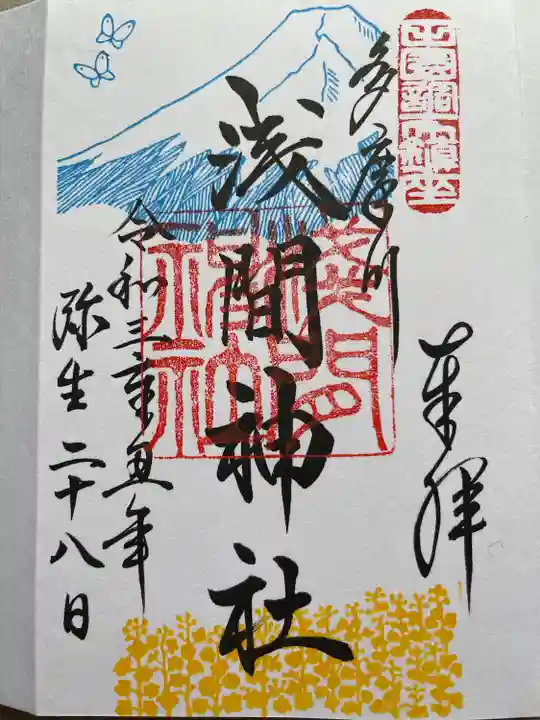 奉拝
多摩川
浅間神社
令和三辛丑年
弥生二十八日
浅間神社